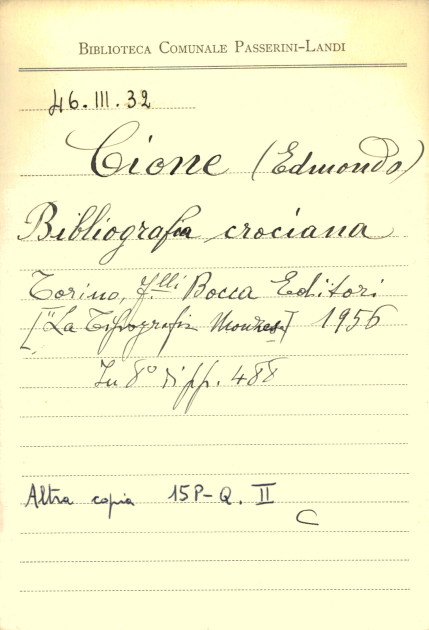 BIBLIOTECA COMUNALE PASSERINI-LANDI
46.III.32
Cione (Edmondo)
Bibliografia crociana
Torino, F.lli Bocca Editori
["La Tipografia 1956
In 8° di pp. 488
Altra copia 15P-Q. II
C